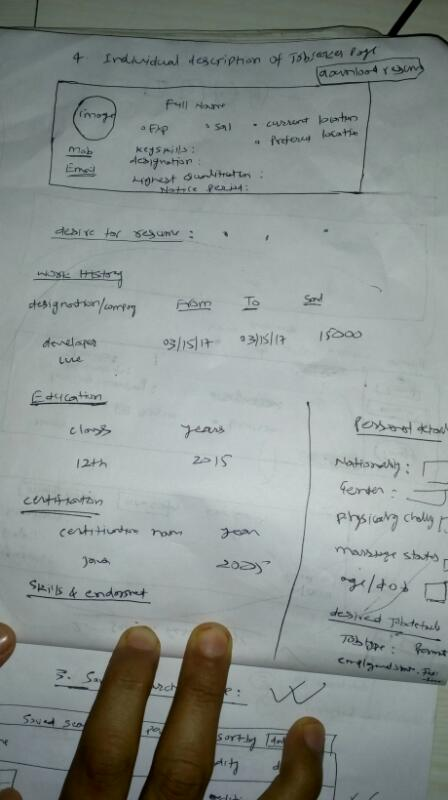 4. Individual description of Jobseeker Page
download resume
Full Name
image
Exp Sal current location
Prefered location
Mob keyskills:
designation:
Email
Highest Qualification:
Notice Period:
desire for resume:
Work History
designation/company From To Sal
developer 03/15/17 03/15/17 15000
Education
class years
12th 2015
certification
certification nam year
java
Skills & endorsment
Personal details
Nationality:
Gender:
physically challg
marriage status
age/dob
desired Jobdetails
Job type: Perman
3. Sav
Saved sea
sort by